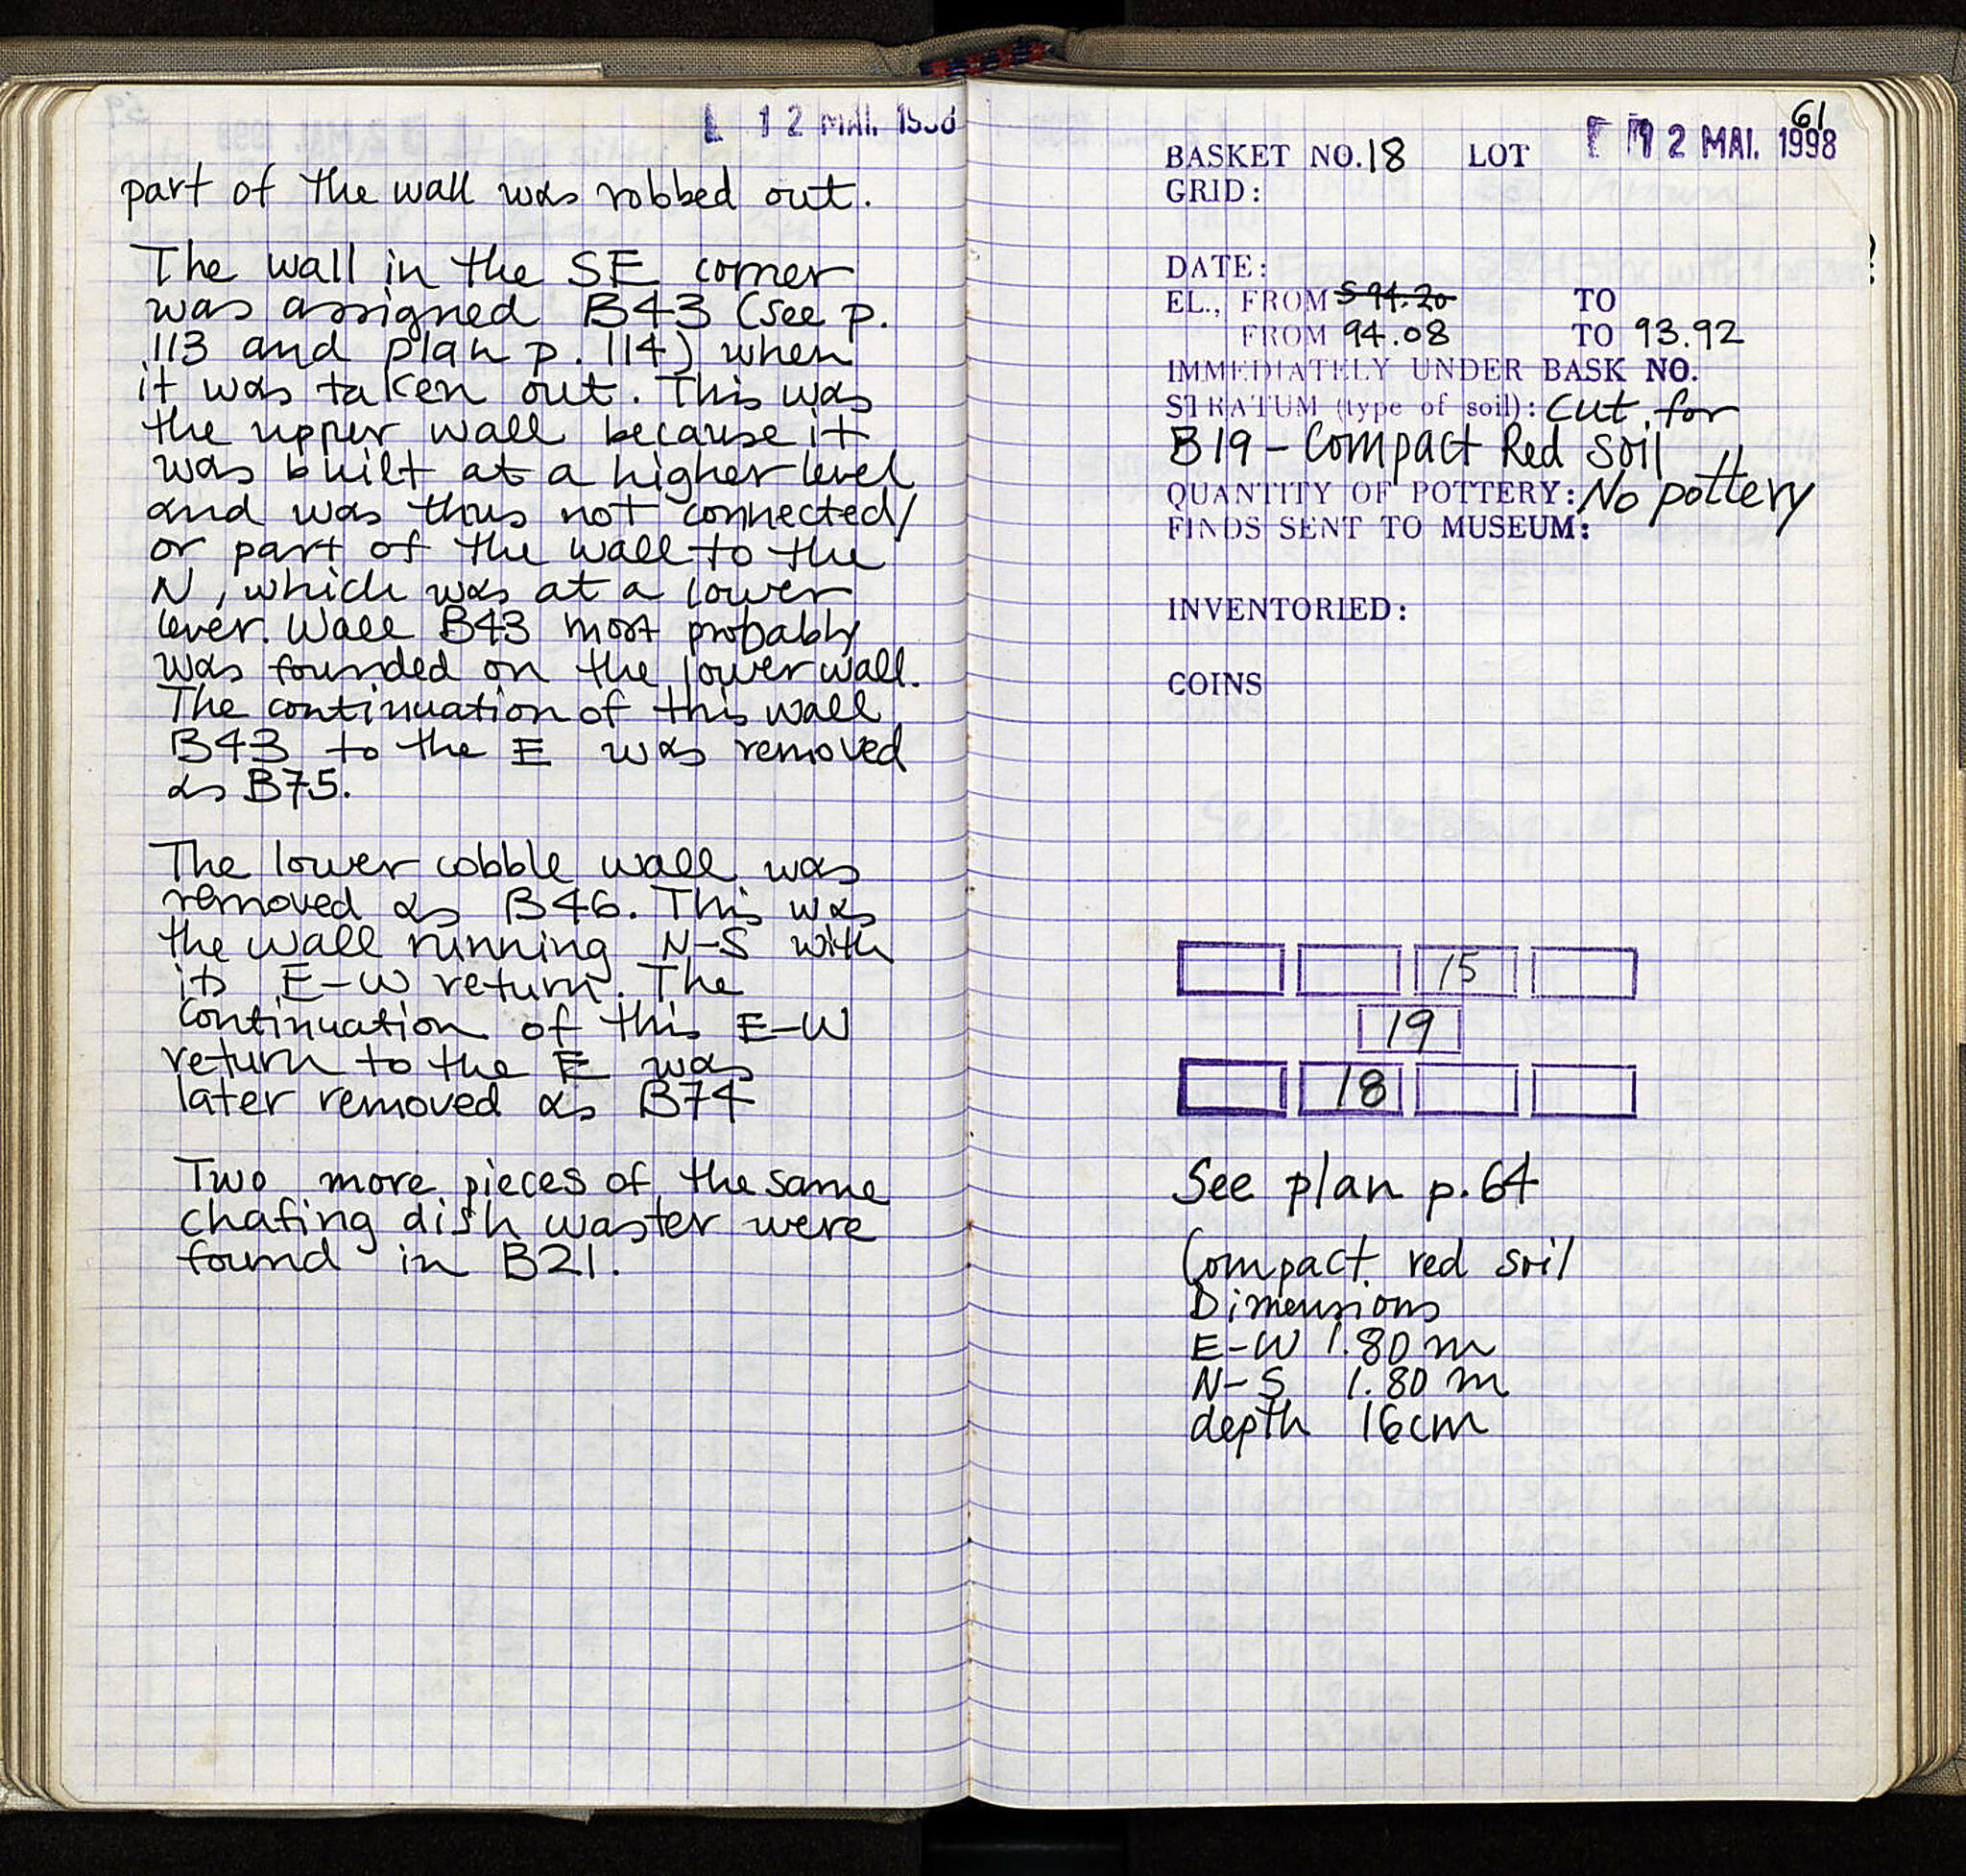 12 MAI. 1998
part of the wall was robbed out.
The wall in the SE corner
was assigned B43 (see p.
113 and plan p. 114) when
it was taken out. This was
the upper wall because it
was built at a higher level
and was thus not connected/
or part of the wall to the
N, which was at a lower
level. Wall B43 most probably
was founded on the lower wall.
The continuation of this wall
B43 to the E was removed
as B75.
The lower cobble wall was
removed as B46. This was
the wall running N-S with
its E-W return. The
continuation of this E-W
return to the E was
later removed as B74
Two more pieces of the same
chafing dish waster were
found in B21.
61
12 MAI. 1998
BASKET NO. 18 LOT
GRID:
DATE:
EL., FROM S 94.20 TO
FROM 94.08 TO 93.92
IMMEDIATELY UNDER BASK NO.
STRATUM (type of soil): Cut for
B19 - Compact Red soil
QUANTITY OF POTTERY: No pottery
FINDS SENT TO MUSEUM:
INVENTORIED:
COINS
15
19
18
See plan p. 64
Compact red soil
Dimensions
E-W 1.80 m
N-S 1.80 m
depth 16cm